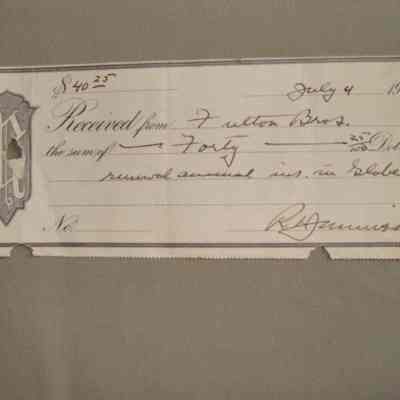 $40 25 July 4 19
Received from Fulton Bros.
the sum of — Forty — 25/100 Dol
renewal annual ins. in Globe
No.